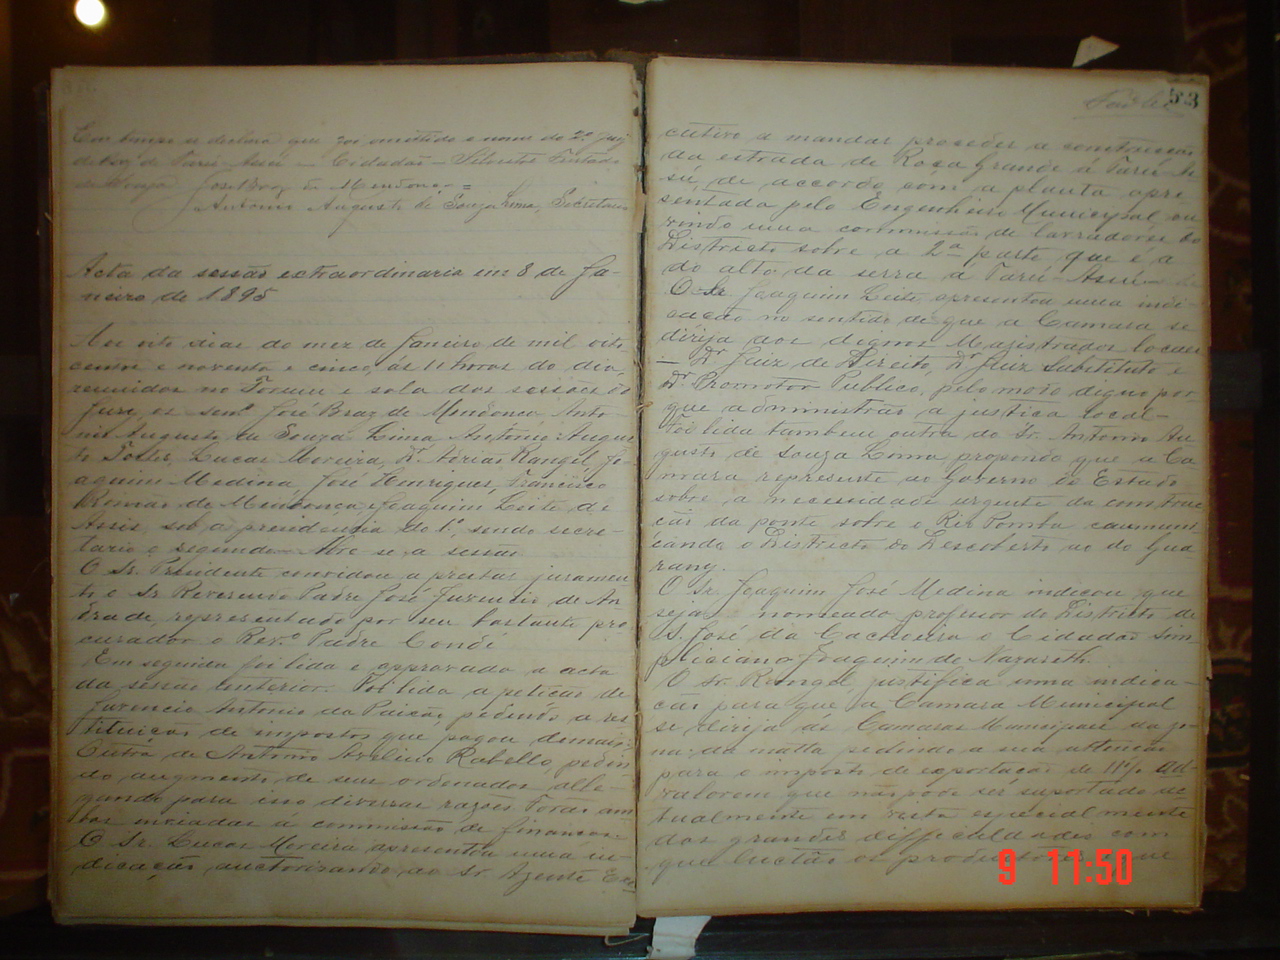 Em tempo se declara que foi omittido o nome do 2º Juiz
de Paz de Tarú-Assú — Cidadão — Silvestre Furtado
de José Braz de Mendonça =
Antonio Augusto de Souza Lima, Secretario
Acta da sessão extraordinaria em 8 de Ja-
neiro de 1895
Aos oito dias do mez de Janeiro de mil oito
centos e noventa e cinco, ás 11 horas do dia,
reunidos no Forum e sala das sessões do
Jury os senrs José Braz de Mendonça Anto-
nio Augusto de Souza Lima Antonio Augus
to Lucas Moreira, Dr Rangel, Jo-
aquim Medina José Henriques, Francisco
Romão de Mendonça, Joaquim Leite de
Assis, sob a presidencia do 1º, sendo secre-
tario o segundo — Abre se a sessão
O Sr. Presidente convidou a prestar juramen
to o Sr Reverendo Padre José Juvencio de An-
drade, representado por seu bastante pro-
curador o Revº Padre Condé
Em seguida foi lida e approvada a acta
da sessão anterior. Foi lida a petição de
Juvencio Antonio da Paixão pedindo a res
tituição de impostos que pagou demais.
Outra de Antonio Avelino Rabello, pedin
do augmento de seus ordenados, alle-
gando para isso diversas razões Foram am
bas enviadas á commissão de finanças.
O Sr. Lucas Moreira apresentou uma in-
dicação auctorizando ao Sr. Agente Exe
53
cutivo a mandar proceder a construcção
da estrada de Roça Grande á Tarú As
sú, de accordo com a planta apre
sentada pelo Engenheiro Municipal ou
vindo uma commissão de lavradores do
Districto sobre a 2ª parte que é a
do alto da serra a Tarú-Assú —
O Sr. Joaquim Leite, apresentou uma indi-
cação no sentido de que a Camara se
dirija aos dignos Magistrados locaes
— Dr Juiz de Direito, Dr Juiz Substituto e
Dr Promotor Publico, pelo modo digno por
que administrão a justiça local —
Foi lida tambem outra do Sr. Antonio Au
gusto de Souza Lima propondo que a Ca
mara represente ao Governo do Estado
sobre a necessidade urgente da construc
ção da ponte sobre o Rio Pomba communi
cando o Districto do Descoberto ao do Gua
rany.
O Sr. Joaquim José Medina indicou que
seja nomeado professor do Districto de
S. José da Cachoeira o Cidadão Sim
pliciano Joaquim de Nazareth.
O Sr. Rangel, justifica uma indica-
ção para que a Camara Municipal
se dirija ás Camaras Municipaes da zo-
na da matta pedindo a sua attenção
para o imposto de exportação de 11% ad
valorem que não pode ser suportado ac
tualmente em vista especialmente
das grandes difficuldades com
que luctão os productores
9 11:50